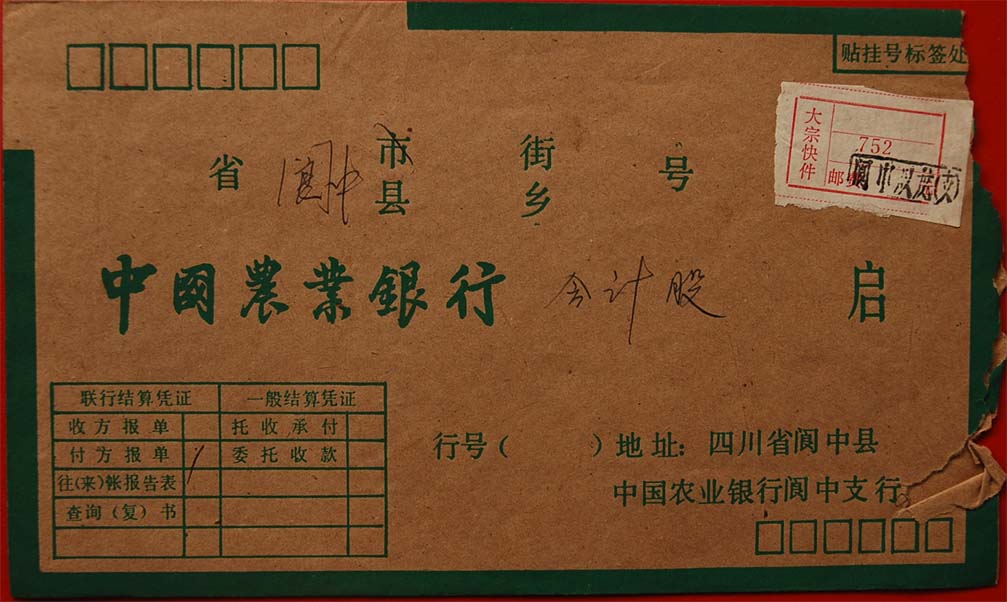 贴挂号标签处
大宗快件
752
邮费
阆中汉龙(支)
省 阆中 市县 街乡 号
中國農業銀行 会计股 启
联行结算凭证 一般结算凭证
收方报单 托收承付
付方报单 / 委托收款
往(来)帐报告表
查询(复)书
行号( )地址:四川省阆中县
中国农业银行阆中支行